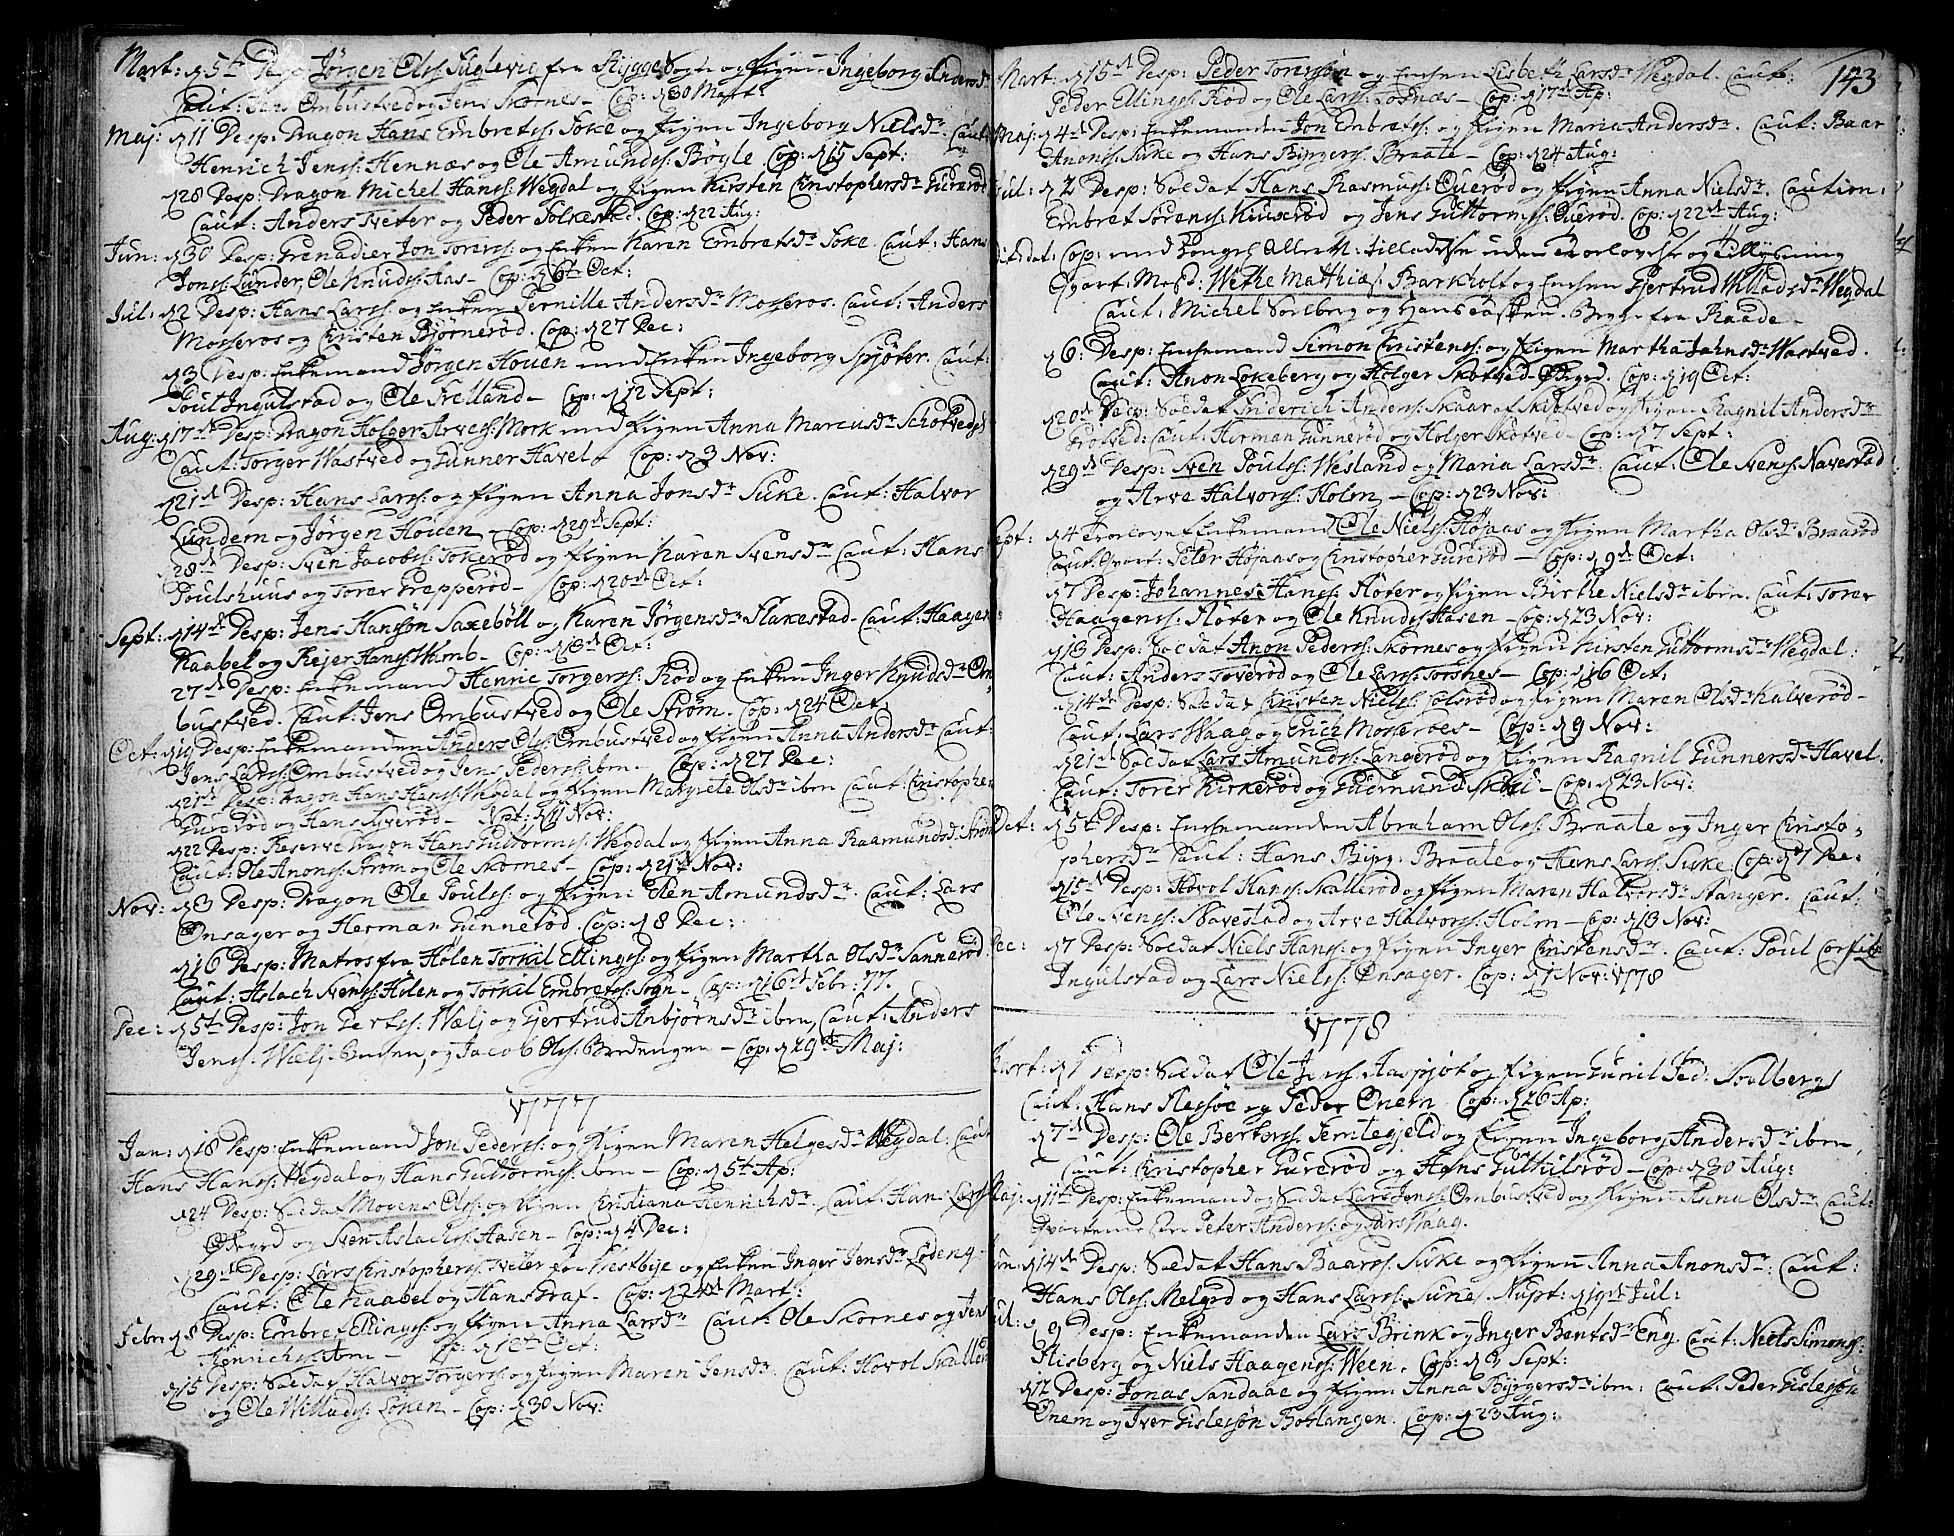 Mart: d 5te Desp: Jörgen Olss: Fuglevig fra Rygge Sogn og Pigen Ingeborg Andersdr
Caut: Jens Ombustved og Jens Skornes – Cop: d 30 Mart:
Maj: d 11 Desp: Dragon Hans Embretss: Foke og Pigen Ingeborg Nielsdr. Caut:
Henrich Jenss: Hennæs og Ole Amundss: Bögle. Cop: d 15 Sept:
d 28 Desp: Dragon Michel Hanss: Wegdal og Pigen Kirsten Christophersdr Gurerød
Caut: Anders Tveter og Peder Folkestad. Cop: d 22 Aug:
Jun: d 30 Desp: Grenadier Jon Torerss: og Enken Karen Embretsdr Foke. Caut: Hans
Jonss: Lunder, Ole Knudss: Aas – Cop: d 6te Oct:
Jul: d 2 Desp: Hans Larss: og Enken Pernille Andersdr Mosseros. Caut: Anders
Mosseros og Cristen Bjørnerød. Cop: d 27 Dec:
d 3 Desp: Enkemand Jörgen Houen med Enken Ingeborg Spjøter. Caut:
Poul Ingulstad og Ole Svelland – Cop: d 12 Sept:
Aug: d 17de Desp: Dragon Holger Arvess: Mork med Pigen Anna Marcusdr Schotved
Caut: Torger Wastved og Gunner Havel – Cop: d 3 Nov:
d 21de Desp: Hans Larss: og Pigen Anna Jonsdr Suke. Caut: Halvor
Lundem og Jörgen Houen – Cop: d 29de Sept:
d 28de Desp: Sven Jacobss: Tokerød og Pigen Karen Svensdr Caut: Hans
Poulshuus og Torer Grepperød – Cop: d 20de Oct:
Sept: d 14de Desp: Jens Hansøn Saxebøll og Karen Jörgensdr Flakestad – Caut: Haagen
Kaabel og Rejer Hanss: Wumb – Cop: d 18de Oct:
27de Desp: Enkemand Henric Torgerss: Rød og Enken Inger Knudsdr Om
bustved. Caut: Jens Ombustved og Ole Strøm. Cop: d 24 Oct:
Oct: d 19 Desp: Enkemanden Anders Olss: Ombustved og Pigen Anna Andersdr Caut:
Jens Larss: Ombustved og Jens Pederss: ibm – Cop: d 27 Dec:
d 21de Desp: Dragon Hans Hanss: Wegdal og Pigen Margrete Olsdr ibm Caut: Christopher
Gurerød og Hans Syverød – Npt: d 11 Nov:
d 22 Desp: Reserve Dragon Hans Guttormss: Wegdal og Pigen Anna Raamundsdr Strøm
Caut: Ole Anonss: Strøm og Ole Skornes – Cop: d 21de Nov:
Nov: d 3 Desp: Dragon Ole Poulss: og Pigen Elen Amundsdr. Caut: Lars
Onsager og Herman Gunnerød. Cop: d 8 Dec:
d 16 Desp: Matros fra Holen Torkil Ellingss: og Pigen Martha Olsdr Sannerød.
Caut: Aslach Svenss: Holen og Torkil Embretss: Sogn – Cop: d 16de Febr: 77.
Dec: d 5te Desp: Jon Gertss: Wælj og Gjertrud Anbjørnsdr ibm, Caut: Anders
Jenss: Wælj og Jacob Olss: Bredengen – Cop: d 29de Maj:
1777
Jan: d 18 Desp: Enkemand Jon Pederss: og Pigen Maren Helgesdr Wegdal: Caut
Hans Hanss: Wegdal og Hans Guttormss: ibm – Cop: d 5te Ap:
d 24 Desp: Soldat Movens Olss: og Pigen Cristiana Henrichsdr. Caut: Hans Larss:
Ødegrd og Sven Aslachss: Aasen – Cop: d 4 Dec:
d 29de Desp: Lars Christopherss: Tveter fra Westbye og Enken Inger Jensdr Lødeng –
Caut: Ole Kaabel og Hans Graf – Cop: d 24de Mart:
Febr: d 8 Desp: Embret Ellingss: og Pigen Anna Larsdr Caut: Ole Skornes og Jens
Henrichss: ibm – Cop: d 12te Oct:
d 15 Desp: Soldat Halvor Torgerss: og Pigen Maren Jensdr. Caut: Hovol Skallerød
og Ole Willads: Løken – Cop: d 30 Nov:
143
Mart: d 15de Desp: Peder Torersøn og Enken Lisbeth Larsdr Wegdal. Caut:
Peder Ellingss: Rød og Ole Larss: Fosnæs – Cop: d 17de Ap:
Maj: d 4de Desp: Enkemanden Jon Embretss: og Pigen Maria Andersdr. Caut: Baar
Anonss: Suke og Hans Byrgerss: Braate – Cop: d 24 Aug:
Jul: d 2 Desp: Soldat Hans Rasmuss: Querød og Pigen Anna Nielsdr. Caution:
Embret Sørenss: Knuserød og Jens Guttormss: Querød. Cop: d 22de Aug:
dito Cop: med Kongel Allern: Tilladelse uden Trolovelse og Tillysning
Qvart: Mest: Wethe Mathias: Barkholt og Enken Gjertrud Willadsdr Wegdal
Caut: Michel Sorlberg og Hans Bryge fra Raade –
d 6: Desp: Enkemand Simon Christenss: og Pigen Martha Jahnsdr Wastved.
Caut: Anon Lokeberg og Holger Skotved Ødegrd. Cop: d 19 Oct:
d 20de Desp: Soldat Friderich Anderss: Skaar af Skiptved og Pigen Ragnil Andersdr
Skotved: Caut: Herman Gunnerød og Holger Skotved – Cop: d 7 Sept:
d 29de Desp: Sven Poulss: Wesland og Maria Larsdr. Caut: Ole Svenss: Navestad
og Arve Halvorss: Holm – Cop: d 23 Nov:
Sept: d 4 Trolovet Enkemand Ole Nielss: Højaas og Pigen Martha Olsdr Braarød
Caut: Qvart: Peter Højaas og Cristopher Gurerød – Cop: d 9de Oct:
d 7 Desp: Johannes Hanss: Fløter og Pigen Birthe Nielsdr ibm. Caut: Torer
Haagenss: Fløter og Ole Knudss: Aasen – Cop: d 23 Nov:
d 13 Desp: Soldat Anon Pederss: Skornes og Pigen Kirsten Guttormsdr Wegdal:
Caut: Anders Toverød og Ole Larss: Fosnes – Cop: d 16 Oct:
d 14de Desp: Soldat Cristen Nielss: Holsrød og Pigen Maren Olsdr Kalverød –
Caut: Lars Waag og Erich Mosseroes – Cop: d 9 Nov:
d 21de Soldat Lars Amundss: Langerød og Pigen Ragnil Gunnersdr Havel.
Caut: Torer Kirkerød og Gudmund Skoni – Cop: d 23 Nov:
Oct: d 5te Desp: Enkemanden Abraham Olss: Braate og Inger Cristo-
phersdr Caut: Hans Byrg: Braate og Hans Larss: Suke. Cop: d 7 Dec:
d 15de Desp: Hovol Hanss: Skallerød og Pigen Maren Halvorsdr Stanger. Caut:
Ole Svenss: Navestad og Arve Halvorss: Holm – Cop: d 13 Nov:
Dec: d 7 Desp: Soldat Niels Hanss: og Pigen Inger Cristensdr. Caut: Poul Corfitz
Ingulstad og Lars Nielss: Onsager. Cop: d 1 Nov: 1778
1778
Mart: d 1 Desp: Soldat Ole Jenss: Aaspjøt og Pigen Gunil Ped: Soelberg
Caut: Hans Flessøe og Peder Onem – Cop: d 26 Ap:
d 7de Desp: Ole Bertorss: Femtegjeld og Pigen Ingeborg Andersdr ibm –
Caut: Christopher Gurerød og Hans Guttulsrød – Cop: d 30 Aug:
Maj: d 11te Desp: Enkemand og Soldat Lars Jenss: Ombustved og Pigen Anna Olsdr: Caut:
Qvarterme Peter Anderss: og Lars Waag.
Jun: d 14de Desp: Soldat Hans Baarss: Suke og Pigen Anna Anonsdr. Caut:
Hans Olss: Melgrd og Hans Larss: Sune. Nupt: d 19de Jul:
Jul: d 9 Desp: Enkemanden Lars Brink og Inger Bentsdr Eng. Caut: Niels Simonss:
Hisberg og Niels Haagenss: Ween. Cop: d 3 Sept:
d 12 Desp: Jonas Sandaae og Pigen Anna Byrgersdr ibm: Caut: Peder Gislesøn
Onem og Iver Gislesøn Botlangen. Cop: d 23 Aug: